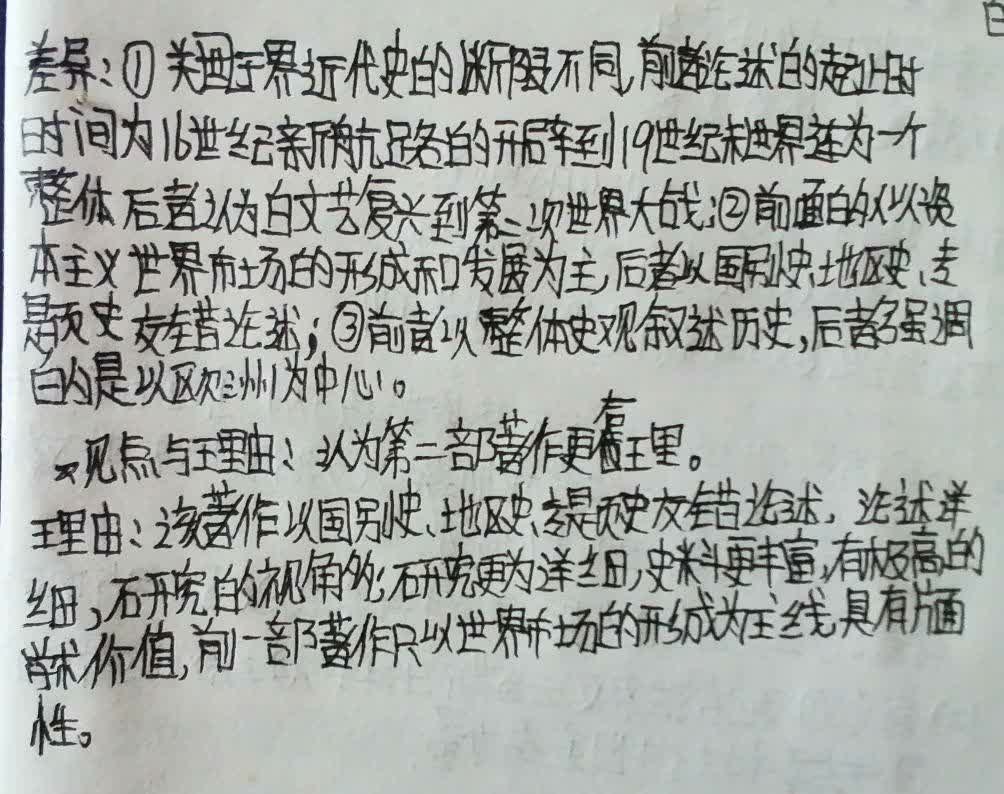 差异：①关西于界近代史的断限不同，前者论述的起止时
时间为16世纪新航路的开辟到19世纪末世界连为一个
整体 后者认为白文艺复兴到第一次世界大战；②前面的以以资
本主义世界市场的形成和发展为主，后者以国别史、地区史、专
题史 交错论述；③前者以整体史观叙述历史，后者强调
的是以欧洲为中心。
观点与理由：认为第二部著作更有合理。
理由：该著作以国别史、地区史、专题史交错论述，论述详
细，研究的视角多；研究更为详细，史料更丰富，有极高的
学术价值，前一部著作只以世界市场的形成为主线，具有片面
性。